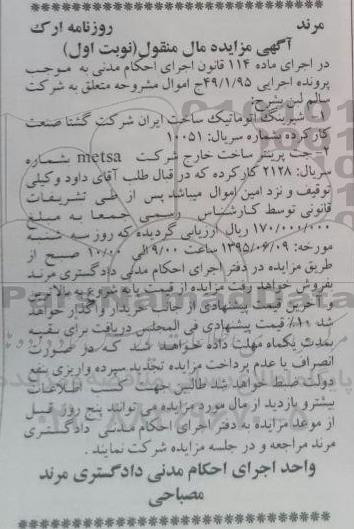 مرند روزنامه ارک
آگهی مزایده مال منقول(نوبت اول)
در اجرای ماده ۱۱۴ قانون اجرای احکام مدنی به موجب
پرونده اجرایی ۴۹/۱/۹۵ج اموال مشروحه متعلق به شرکت
سالم لبن بشرح:
شیرینک اتوماتیک ساخت ایران شرکت گشتا صنعت
کارکرده شماره سریال: ۱۰۰۵۱
۲- جت پرینتر ساخت خارج شرکت metsa بشماره
سریال: ۲۱۲۸ کارکرده که در قبال طلب آقای داود وکیلی
توقیف و نزد امین اموال میباشد پس از طی تشریفات
قانونی توسط کارشناس رسمی جمعا به مبلغ
۱۷۰/۰۰۰/۰۰۰ ریال ارزیابی گردیده که روز سه شنبه
مورخه: ۱۳۹۵/۰۶/۰۹ ساعت ۰۹/۰۰ الی ۱۰/۰۰ صبح از
طریق مزایده در دفتر اجرای احکام مدنی دادگستری مرند
بفروش خواهد رفت مزایده از قیمت پایه شروع به بالاترین
و آخرین قیمت پیشنهادی از جانب خریدار واگذار خواهد
شد ۱۰٪ قیمت پیشنهادی فی المجلس دریافت برای بقیه
بمدت یکماه مهلت داده خواهد شد که در صورت
انصراف یا عدم پرداخت مزایده تجدید سپرده واریزی بنفع
دولت ضبط خواهد شد طالبین جهت کسب اطلاعات
بیشتر و بازدید از مال مورد مزایده می توانند پنج روز قبل
از موعد مزایده به دفتر اجرای احکام مدنی دادگستری
مرند مراجعه و در جلسه مزایده شرکت نمایند.
واحد اجرای احکام مدنی دادگستری مرند
مصباحی